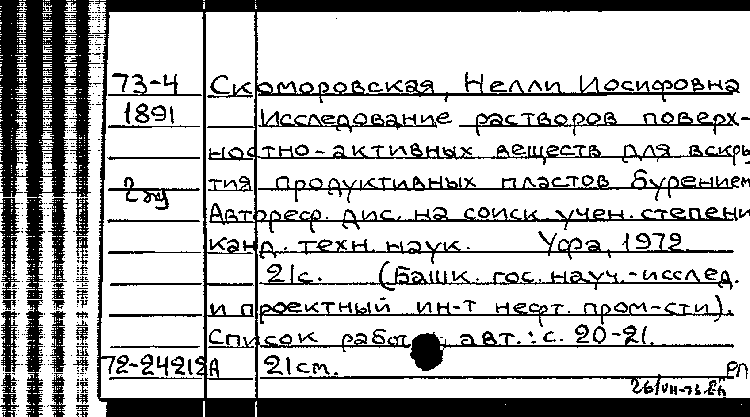 73-4 Скоморовская, Нелли Иосифовна
1891 Исследование растворов поверх-
ностно-активных веществ для вскры
тия продуктивных пластов бурением
Автореф. дис. на соиск. учен. степени
канд. техн. наук. Уфа, 1972.
21с. (Башк. гос. науч.-исслед.
и проектный ин-т нефт. пром-сти).
Список работ авт.: с. 20-21.
72-24212А 21см. РП